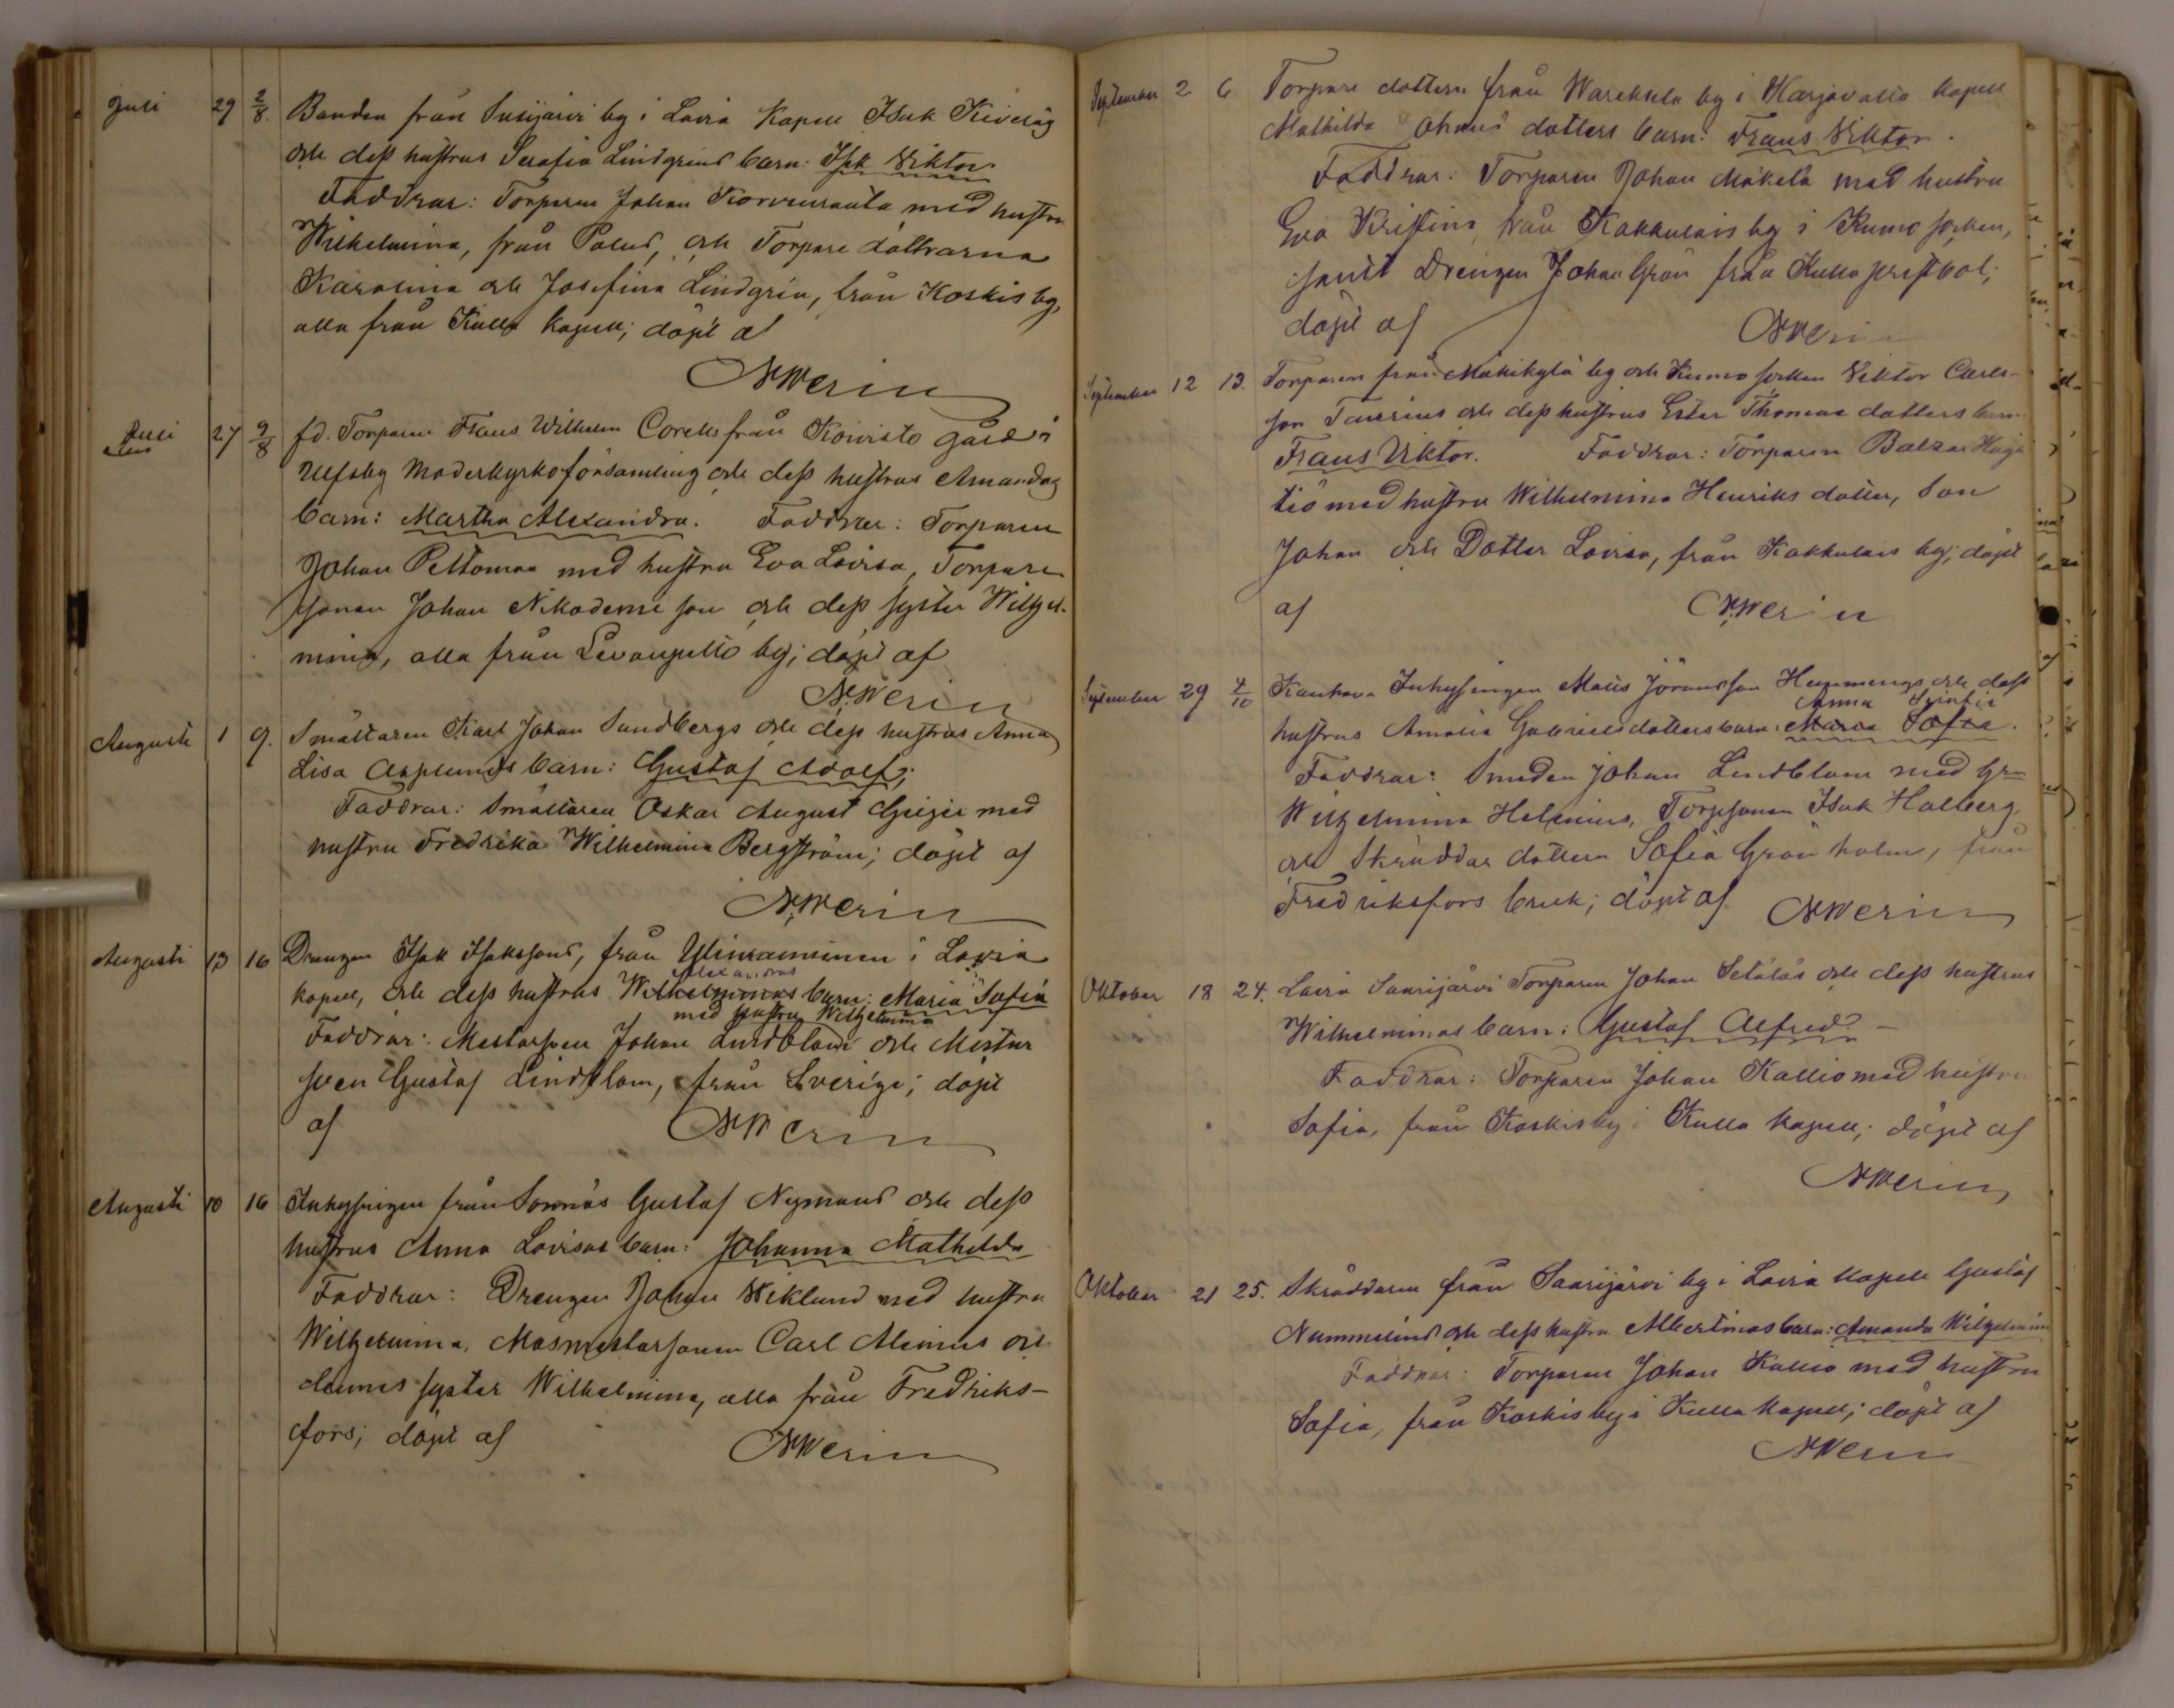 Juli 29 2/8. Bonden från Susijärvi by i Lavia Kapell Isak Kiveläs
och dess hustrus Serafia Lindgrens barn: Isak Viktor
Faddrar: Torparen Johan Korvenrauta med hustru
Wilhelmina, från Palus, och Torpare döttrarna
Karolina och Josefina Lindgrén, från Koskis by,
alla från Kulla Kapell; döpt af
NWerin
Juli 27 9/8 fd. Torparen Frans Wilhelm Corells från Koivisto gård i
Ulfsby Moderkyrkoförsamling och dess hustrus Amandas
barn: Martha Alexandra. Faddrar: Torparen
Johan Peltomaa med hustru Eva Lovisa, Torpare
sonen Johan Nikodemi son och dess syster Wilhel-
mina, alla från Levanpelto by; döpt af
N.Werin
Augusti 1 9. Smältaren Karl Johan Sundbergs och dess hustrus Anna
Lisa Asplunds barn: Gustaf Adolf;
Faddrar: Smältaren Oskar August Grejer med
hustru Fredrika Wilhelmina Bergström; döpt af
N.Werin
Augusti 13 16 Drengen Isak Isakssons, från Ylinraminen i Lavia
Alexandras
kapell, och dess hustrus Wilhelminas barn: Maria Sofia
med hustru Wilhelmina
Faddrar: Mästarsven Johan Lindblom och Mästar
sven Gustaf Lindblom, från Sverige; döpt
af NWerin
Augusti 10 16 Inhysingen från Sonnäs Gustaf Nymans och dess
hustrus Anna Lovisas barn: Johanna Mathilda
Faddrar: Drengen Johan Wiklund med hustru
Wilhelmina, Masmästarsonen Carl Alenius och
dennes syster Wilhelmina, alla från Fredriks-
fors; döpt af NWerin
September 2 6 Torpare dottern från Warekselä by i Harjavalta kapell
Mathilda Johans dotters barn: Frans Viktor.
Faddrar: Torparen Johan Mäkelä med hustru
Eva Kristina från Kakkulais by i Kumo socken,
samt Drengen Johan Grön från Kulla prestbol;
döpt af NWerin
September 12 13. Torparen från Mäkikylä by och Kumo socken Viktor Carls-
son Taurius och dess hustrus Ester Thomas dotters barn
Frans Viktor. Faddrar: Torparen Balzar Haja
tiö med hustru Wilhelmina Henriks dotter, Son
Johan och Dotter Lovisa, från Kakkulais by; döpt
af N.Werin
September 29 4/10 Inhysingen Matts Jöransson Hemmings och dess
Anna Serafia
hustrus Amalia Gabrielsdotters barn: Maria Sofia.
Faddrar: Smeden Johan Lindblom med hru
Wilhelmina Helenius, Torpsonen Isak Halberg,
och Skräddar dottern Sofia Grönholm, från
Fredriksfors bruk; döpt af NWerin
Oktober 18 24. Lavia Saarijärvi Torparen Johan Setäläs och dess hustrus
Wilhelminas barn: Gustaf Alfred.
Faddrar: Torparen Johan Kallio med hustru
Sofia, från Koskis by i Kulla kapell; döpt af
NWerin
Oktober 21 25. Skräddaren från Saarijärvi by i Lavia kapell Gustaf
Nummelins och dess hustru Albertinas barn: Amanda Wilhelmina
Faddrar: Torparen Johan Kallio med hustru
Sofia, från Koskis by i Kulla kapell; döpt af
NWerin